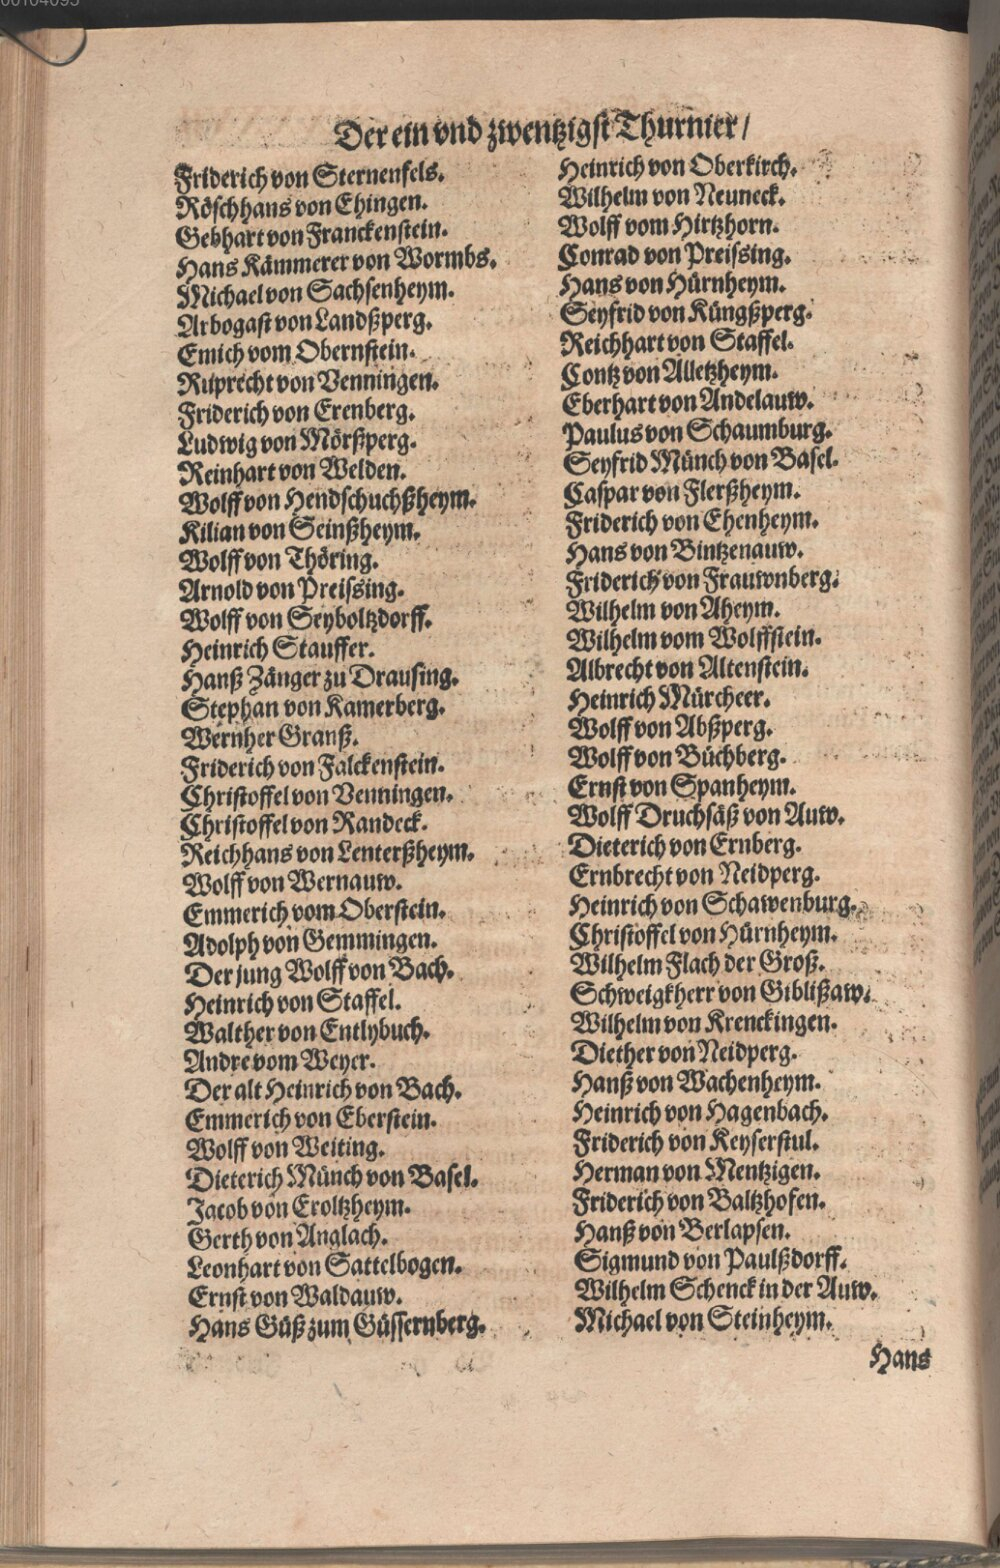 Der ein vnd zwentzigst Thurnier /
Friderich von Sternenfels.
Röschhans von Ehingen.
Gebhart von Franckenstein.
Hans Kämmerer von Wormbs.
Michael von Sachsenheym.
Arbogast von Landßperg.
Emich vom Obernstein.
Ruprecht von Venningen.
Friderich von Erenberg.
Ludwig von Mörßperg.
Reinhart von Welden.
Wolff von Hendschuchßheym.
Kilian von Seinßheym.
Wolff von Thöring.
Arnold von Preissing.
Wolff von Seyboltzdorff.
Heinrich Stauffer.
Hanß Zänger zu Drausing.
Stephan von Kamerberg.
Wernher Granß.
Friderich von Falckenstein.
Christoffel von Venningen.
Christoffel von Randeck.
Reichhans von Lenterßheym.
Wolff von Wernauw.
Emmerich vom Oberstein.
Adolph von Gemmingen.
Der jung Wolff von Bach.
Heinrich von Staffel.
Walther von Entlybuch.
Andre vom Weyer.
Der alt Heinrich von Bach.
Emmerich von Eberstein.
Wolff von Weiting.
Dieterich Münch von Basel.
Jacob von Eroltzheym.
Gerth von Anglach.
Leonhart von Sattelbogen.
Ernst von Waldauw.
Hans Güß zum Güssernberg.
Heinrich von Oberkirch.
Wilhelm von Neuneck.
Wolff vom Hirtzhorn.
Conrad von Preissing.
Hans von Hürnheym.
Seyfrid von Küngßperg.
Reichhart von Staffel.
Contz von Alletzheym.
Eberhart von Andelauw.
Paulus von Schaumburg.
Seyfrid Münch von Basel.
Caspar von Flerßheym.
Friderich von Ehenheym.
Hans von Bintzenauw.
Friderich von Frauwnberg.
Wilhelm von Aheym.
Wilhelm vom Wolffstein.
Albrecht von Altenstein.
Heinrich Mürcheer.
Wolff von Abßperg.
Wolff von Büchberg.
Ernst von Spanheym.
Wolff Druchsäß von Auw.
Dieterich von Ernberg.
Ernbrecht von Neidperg.
Heinrich von Schawenburg.
Christoffel von Hürnheym.
Wilhelm Flach der Groß.
Schweigkherr von Giblißaw.
Wilhelm von Krenckingen.
Diether von Neidperg.
Hanß von Wachenheym.
Heinrich von Hagenbach.
Friderich von Keyserstul.
Herman von Mentzigen.
Friderich von Baltzhofen.
Hanß von Berlapsen.
Sigmund von Paulßdorff.
Wilhelm Schenck in der Auw.
Michael von Steinheym.
Hans